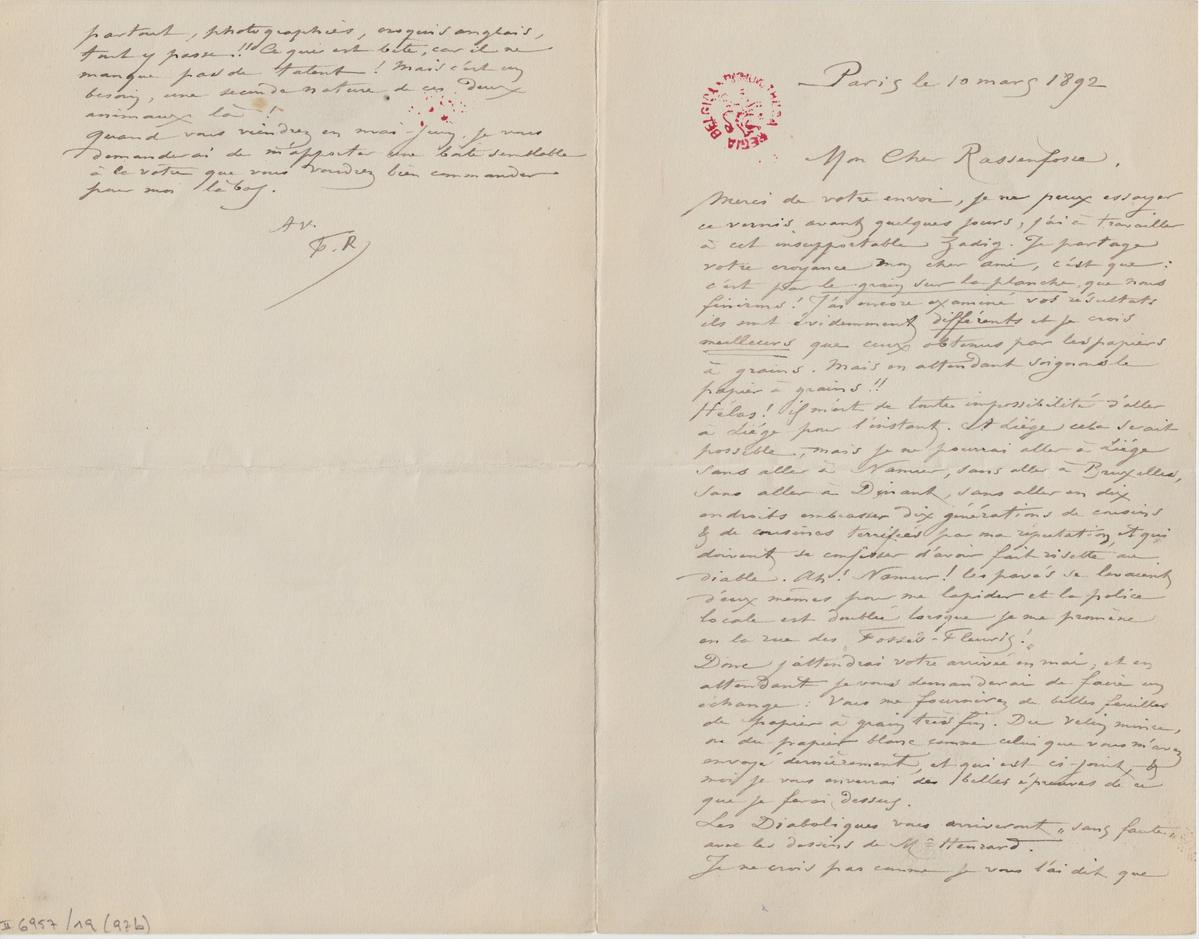 Paris le 10 mars 1892
BIBLIOTHECA REGIA BELGICA
Mon Cher Rassenfosse,
Merci de votre envoi, je ne peux essayer
ce vernis avant quelques jours, j'ai à travailler
à cet insupportable Zadig. Je partage
votre croyance mon cher ami, c'est que :
c'est par le grain sur la planche, que nous
finirons ! J'ai encore examiné vos résultats
ils sont évidemment différents et je crois
meilleurs que ceux obtenus par les papiers
à grains. Mais en attendant soignons le
papier à grains !!
Hélas ! il m'est de toute impossibilité d'aller
à Liége pour l'instant. A Liége cela serait
possible, mais je ne pourrai aller à Liége
sans aller à Namur, sans aller à Bruxelles,
sans aller à Dinant, sans aller en dix
endroits embrasser dix générations de cousins
& de cousines terrifiés par ma réputation, et qui
doivent se confesser d'avoir fait risette au
diable. Ah ! Namur ! les pavés se lèvent
d'eux mêmes pour me lapider et la police
locale est doublée lorsque je me promène
en la rue des Fossés-Fleuris !
Donc j'attendrai votre arrivée en mai, et en
attendant je vous demanderai de faire un
échange : Vous me fournirez de belles feuilles
de papier à grain très fin. Du velin mince,
ou du papier blanc comme celui que vous m'avez
envoyé dernièrement, et qui est ci-joint, &
moi je vous enverrai des belles épreuves de ce
que je ferai dessus.
Les Diaboliques vous arriveront „ sans faute „
avec les dessins de Mr Henrard.
Je ne crois pas comme je vous l'ai dit que
partout, photographies, croquis anglais,
tout y passe !! Ce qui est bête, car il ne
manque pas de talent ! Mais c'est un
besoin, une seconde nature de ces deux
animaux là !
Quand vous viendrez en mai-juin, je vous
demanderai de m'apporter une boîte semblable
à la vôtre que vous voudrez bien commander
pour moi là bas.
Av.
F. R
II 6957/19 (97b)